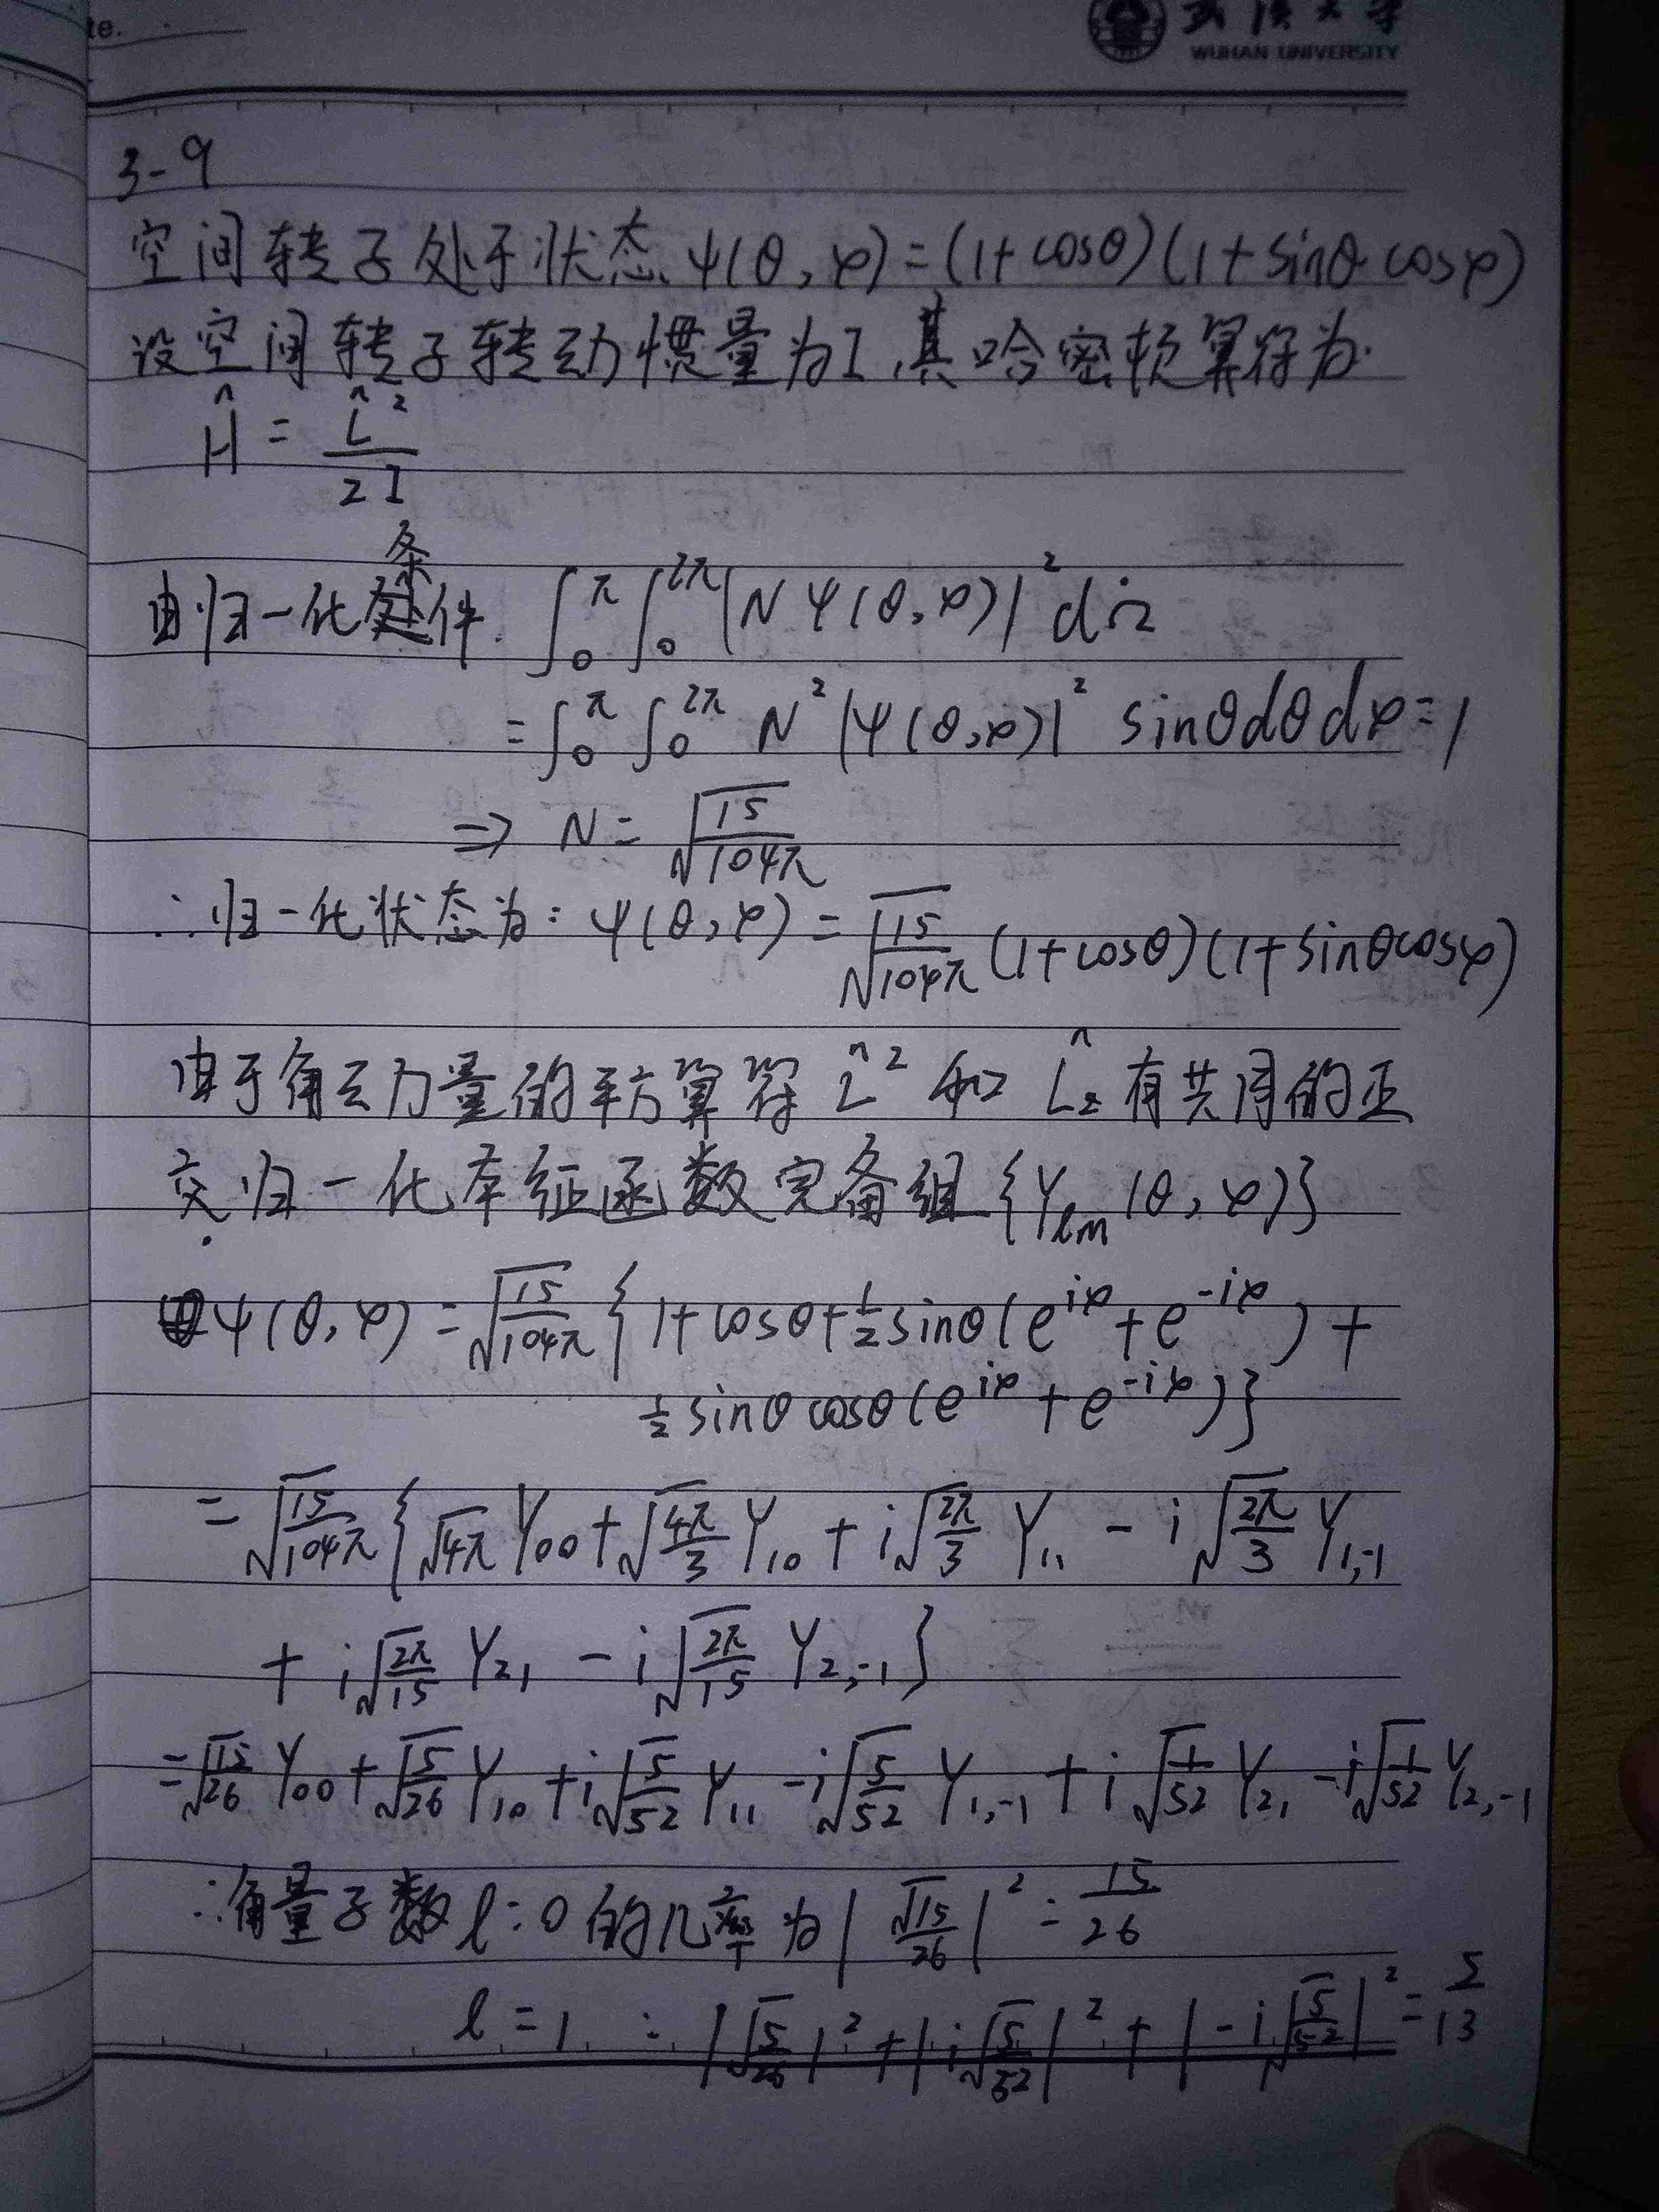 te.
武汉大学
WUHAN UNIVERSITY
3-9
空间转子处于状态 ψ(θ,φ)=(1+cosθ)(1+sinθcosφ)
设空间转子转动惯量为I,其哈密顿算符为
Ĥ = L̂²/2I
由归一化条件. ∫₀^π ∫₀^2π |Nψ(θ,φ)|² dΩ
= ∫₀^π ∫₀^2π N² |ψ(θ,φ)|² sinθdθdφ=1
⇒ N = √(15/104π)
∴归一化状态为: ψ(θ,φ) = √(15/104π) (1+cosθ)(1+sinθcosφ)
由于角动量的平方算符 L̂² 和 L̂z 有共同的正
交归一化本征函数完备组{Yℓm(θ,φ)}
ψ(θ,φ) = √(15/104π) { 1+cosθ+½sinθ(e^iφ+e^-iφ) +
½sinθcosθ(e^iφ+e^-iφ)}
= √(15/104π) {√4π Y₀₀+√(4π/3) Y₁₀ + i√(2π/3) Y₁₁ - i√(2π/3) Y₁,₋₁
+ i√(2π/15) Y₂₁ - i√(2π/15) Y₂,₋₁}
=√(15/26) Y₀₀+√(5/26) Y₁₀+i√(5/52) Y₁₁ -i√(5/52) Y₁,₋₁ + i√(1/52) Y₂₁ -i√(1/52) Y₂,₋₁
∴角量子数ℓ=0的几率为|√(15/26)|² = 15/26
ℓ=1 : |√(5/26)|²+|i√(5/52)|²+|-i√(5/52)|² = 5/13